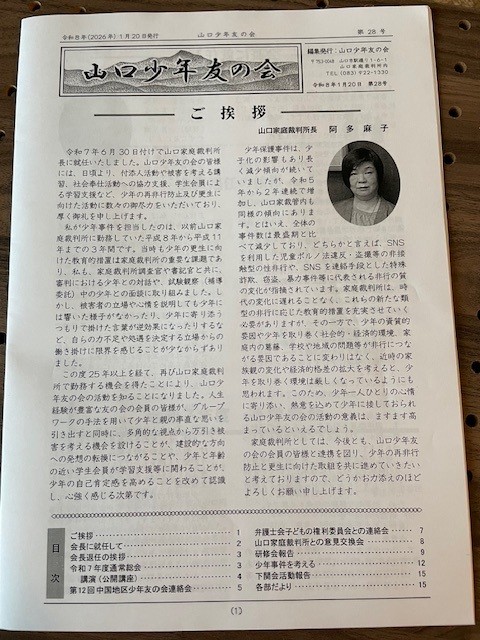 令和8年(2026年)1月20日発行
山口少年友の会
第28号
山口少年友の会
編集発行：山口少年友の会
〒753-0048 山口市駅通り1-6-1
山口家庭裁判所内
TEL (083) 922-1330
令和8年1月20日 第28号
ご挨拶
山口家庭裁判所長 阿多麻子
令和7年6月30日付けで山口家庭裁判所
長に就任いたしました。山口少年友の会の皆様
には、日頃より、付添人活動や被害を考える講
習、社会奉仕活動への協力支援、学生会員によ
る学習支援など、少年の再非行防止及び更生に
向けた活動に数々の御尽力をいただいており、
厚く御礼を申し上げます。
私が少年事件を担当したのは、以前山口家
庭裁判所に勤務していた平成8年から平成11
年までの3年間です。当時も少年の更生に向
けた教育的措置は家庭裁判所の重要な課題であ
り、私も、家庭裁判所調査官や書記官と共に、
審判における少年との対話や、試験観察（補導
委託）中の少年との面談に取り組みました。し
かし、被害者の立場や心情を説明しても少年に
は響いた様子がなかったり、少年に寄り添う
つもりで掛けた言葉が逆効果になったりするな
ど、自らの力不足や処遇を決定する立場からの
働き掛けに限界を感じることが少なからずあり
ました。
この度25年以上を経て、再び山口家庭裁判
所で勤務する機会を得たことにより、山口少年
友の会の活動を知ることになりました。人生
経験が豊富な友の会の会員の皆様が、グループ
ワークの手法を用いて少年と親の率直な思いを
引き出すと同時に、多角的な視点から万引き被
害を考える機会を設けることが、建設的な方向
への発想の転換につながることや、少年と年齢
の近い学生会員が学習支援等に関わることが、
少年の自己肯定感を高めることを改めて認識
し、心強く感じる次第です。
少年保護事件は、少
子化の影響もあり長
く減少傾向が続いて
いましたが、令和5
年から2年連続で増
加し、山口家裁管内も
同様の傾向にありま
す。とはいえ、全体の
事件数は最盛期と比
べて減少しており、どちらかと言えば、SNS
を利用した児童ポルノ法違反・盗撮等の非接
触型の性非行や、SNSを連絡手段とした特殊
詐欺、窃盗、暴力事件等に代表される非行の質
の変化が指摘されています。家庭裁判所は、時
代の変化に遅れることなく、これらの新たな類
型の非行に応じた教育的措置を充実させていく
必要がありますが、その一方で、少年の資質的
要因や少年を取り巻く社会的・経済的環境、家
庭内の葛藤、学校や地域の問題等が非行につな
がる要因であることに変わりはなく、近時の家
族観の変化や経済的格差の拡大を考えると、少
年を取り巻く環境は厳しくなっているようにも
思われます。このため、少年一人ひとりの心情
に寄り添い、熱意を込めて少年に接しておられ
る山口少年友の会の活動の意義は、ますます高
まっているといえるでしょう。
家庭裁判所としては、今後とも、山口少年友
の会の会員の皆様と連携を図り、少年の再非行
防止と更生に向けた取組を共に進めていきたい
と考えておりますので、どうかお力添えのほど
よろしくお願い申し上げます。
目次
ご挨拶 1
会長に就任して 2
会長退任の挨拶 3
令和7年度通常総会 3
講演（公開講座） 4
第12回中国地区少年友の会連絡会 5
弁護士会子どもの権利委員会との連絡会 7
山口家庭裁判所との意見交換会 8
研修会報告 9
少年事件を考える 12
下関会活動報告 15
各部だより 15
(1)